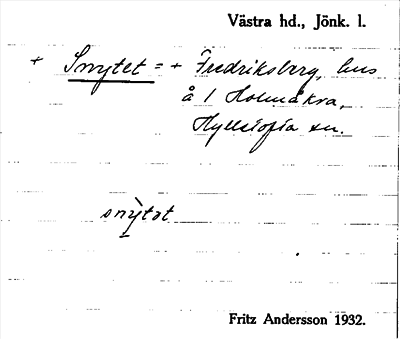 Västra hd., Jönk. l.
+ Snytet = + Fredriksberg, hus
å 1 Holmåkra,
Hyllstofta sn.
snỳtət
Fritz Andersson 1932.